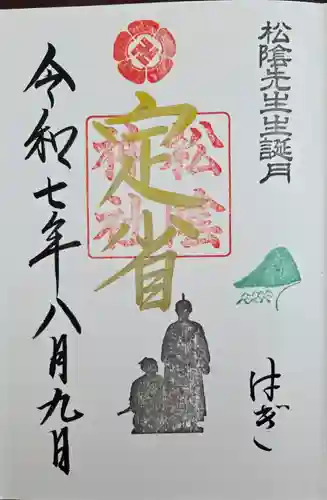 松陰先生生誕月
はぎ
定省
松陰神社
令和七年八月九日